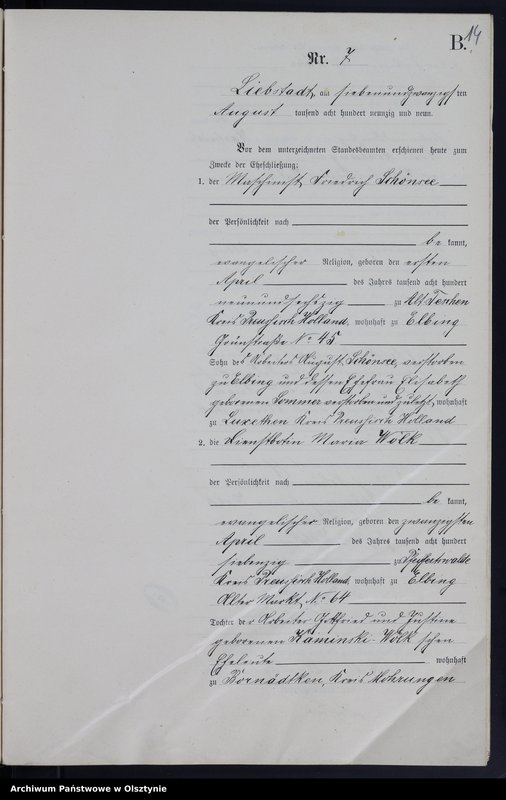 B. 14
Nr. 7
Liebstadt, am siebenundzwanzigsten
August tausend acht hundert neunzig und neun.
Vor dem unterzeichneten Standesbeamten erschienen heute zum
Zwecke der Eheschließung:
1. der Maschinist Friedrich Schönsee
der Persönlichkeit nach
be kannt,
evangelischer Religion, geboren den ersten
April des Jahres tausend acht hundert
neunundsechszig zu Alt Teschen
Kreis Preussisch Holland, wohnhaft zu Elbing
Grünstraße No 45
Sohn des Arbeiters August Schönsee, verstorben
zu Elbing und dessen Ehefrau Elisabeth
geborenen Sommer verstorben und zuletzt wohnhaft
zu Luxethen Kreis Preussisch Holland
2. die Dienstbotin Maria Wölk
der Persönlichkeit nach
be kannt,
evangelischer Religion, geboren den zwanzigsten
April des Jahres tausend acht hundert
siebenzig zu
Kreis Preussisch Holland, wohnhaft zu Elbing
Alter Markt No 64
Tochter der Arbeiter Gottfried und Justine
geborenen Kaminski-Wölk'schen
Eheleute wohnhaft
zu Bornädtken, Kreis Mohrungen
Archiwum Państwowe w Olsztynie